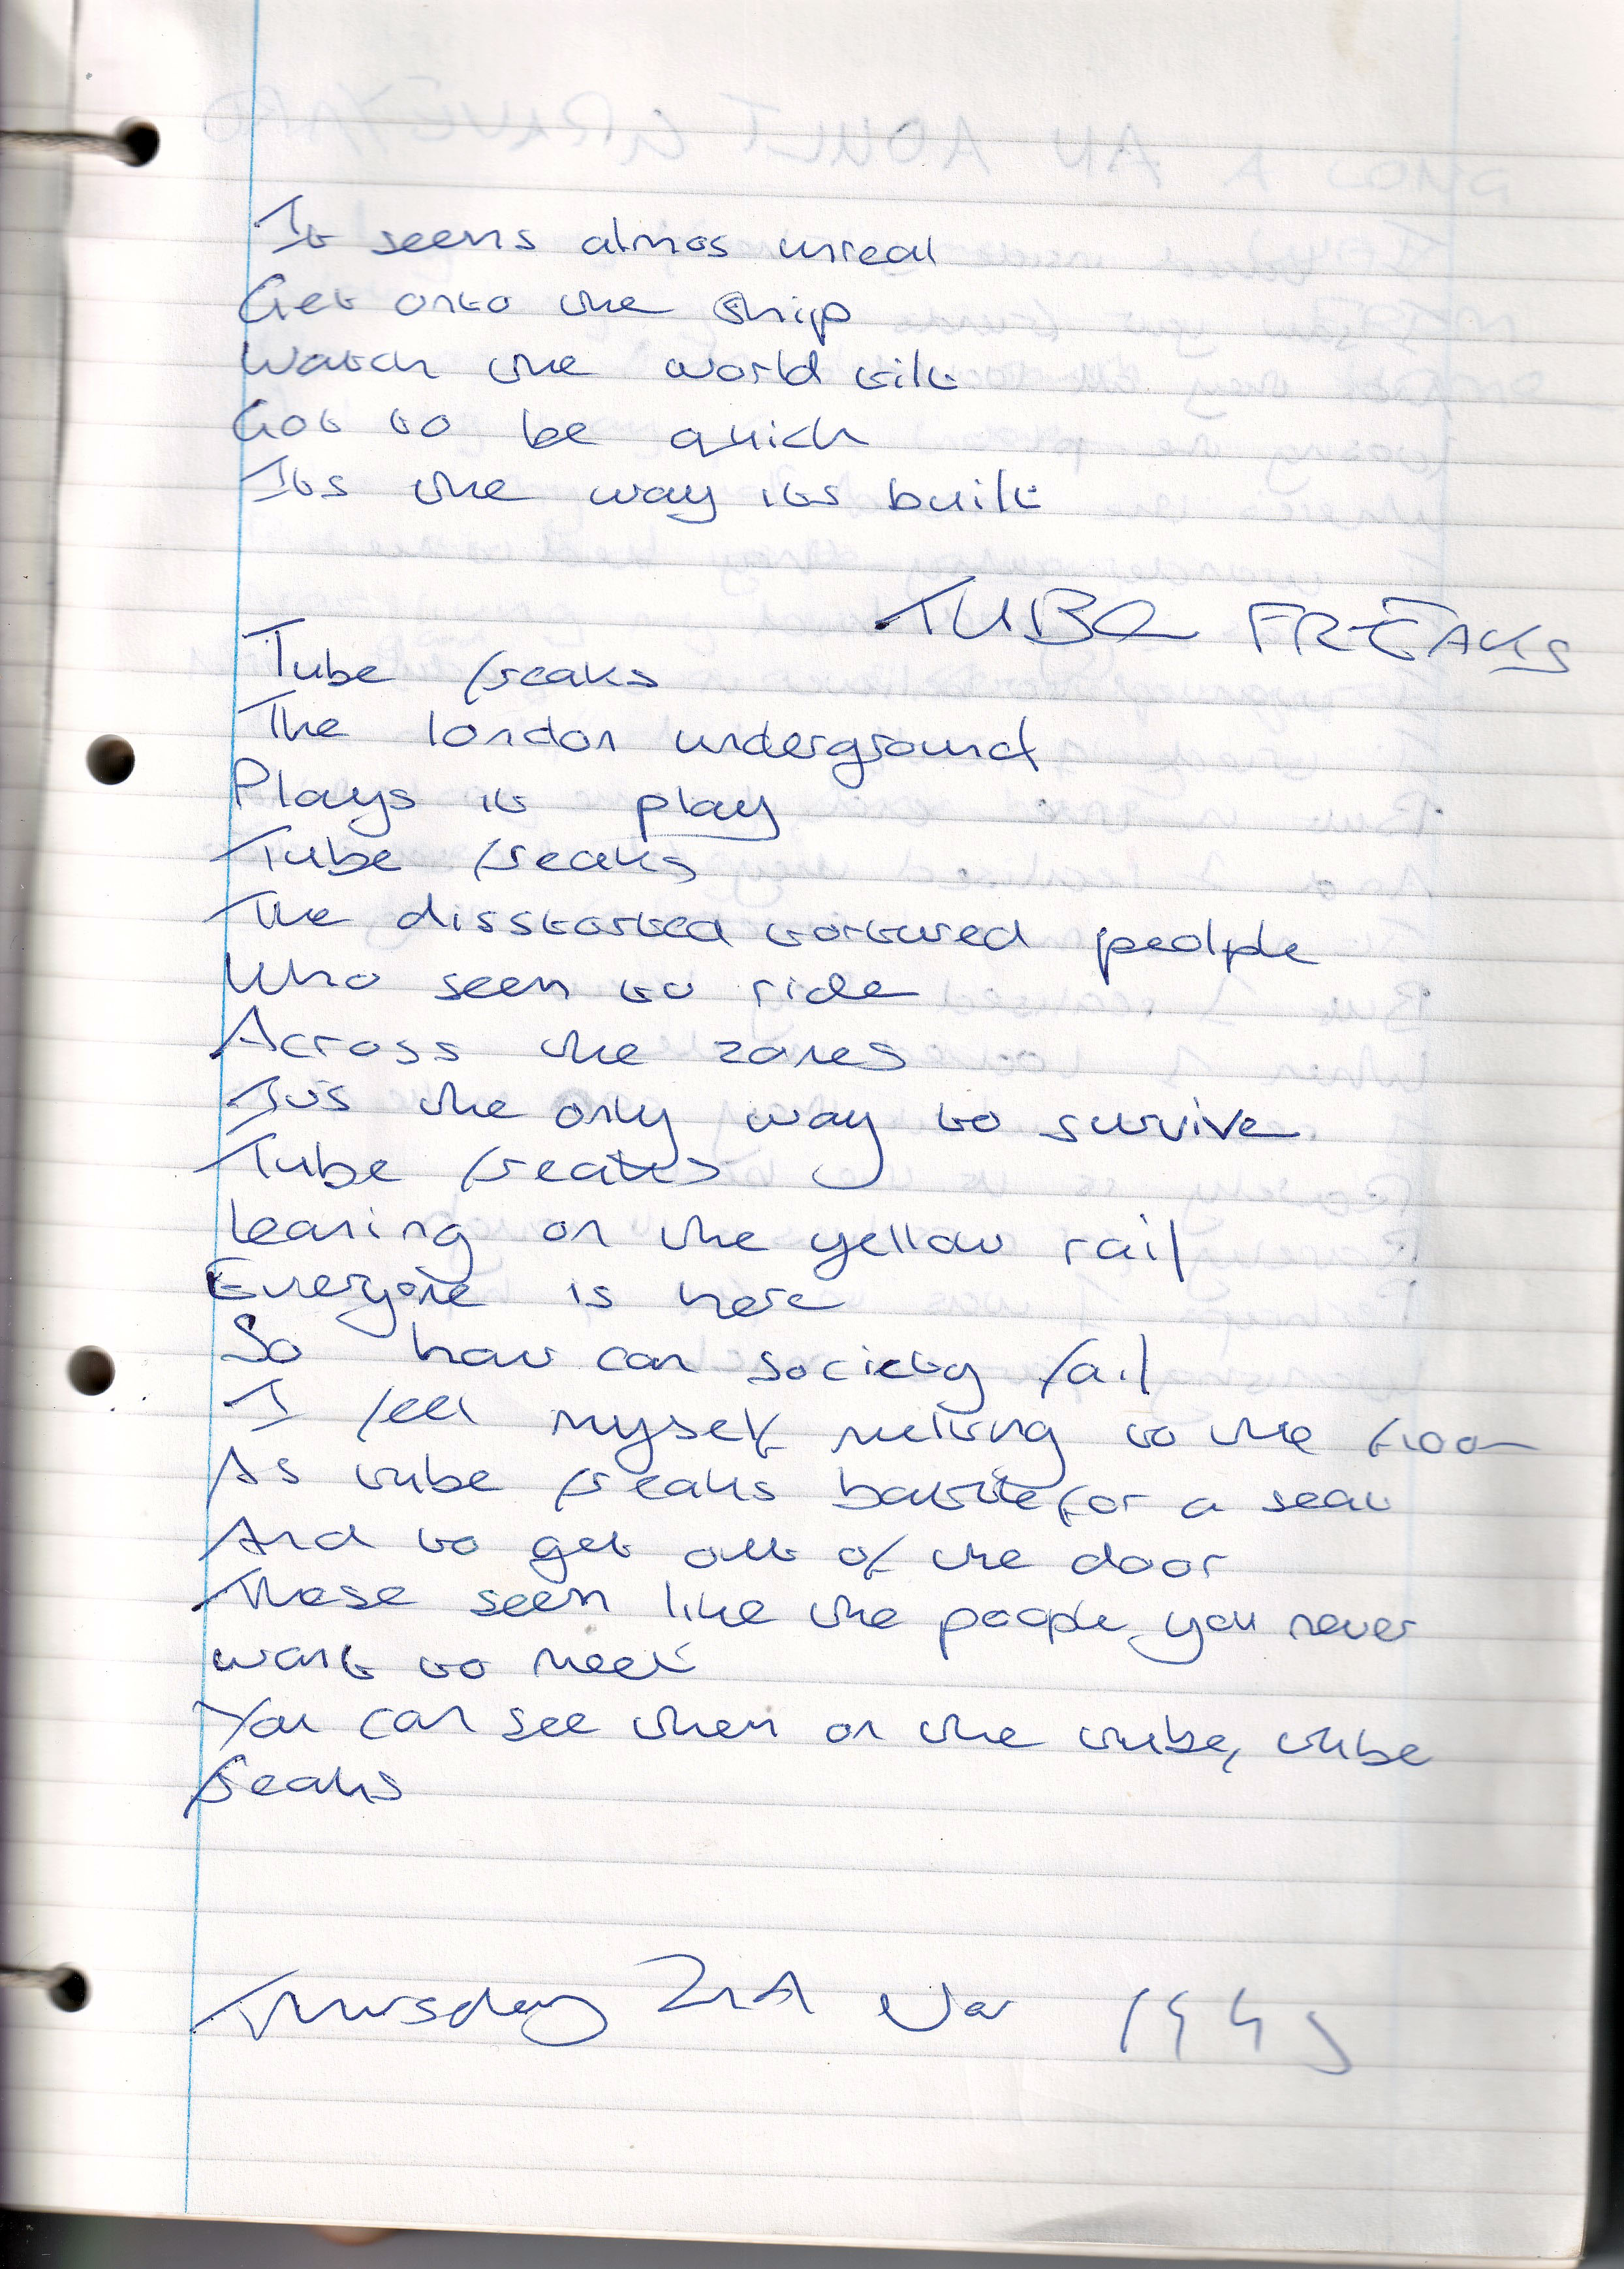 It seems almos unreal
Get onto the ship
Watch the world tilt
Got to be quick
Its the way its built
TUBE FREAKS
Tube freaks
The london underground
Plays it play
Tube freaks
The disstorted tortured people
Who seem to ride
Across the zones
Its the only way to survive
Tube freaks
Leaning on the yellow rail
Everyone is here
So how can society fail
I feel myself melting to the floor
As tube freaks battle for a seat
And to get out of the door
These seem like the people you never
want to meet
You can see them on the tube, tube
freaks
Thursday 2nd Nov 1995